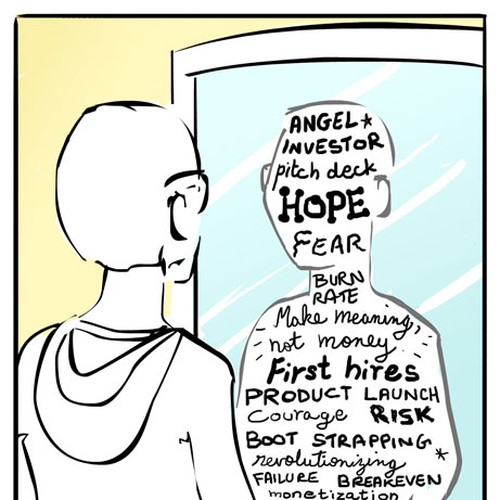 ANGEL
INVESTOR
pitch deck
HOPE
FEAR
BURN
RATE
Make meaning,
not money
First hires
PRODUCT LAUNCH
Courage RISK
BOOT STRAPPING
revolutionizing
FAILURE BREAKEVEN
monetization